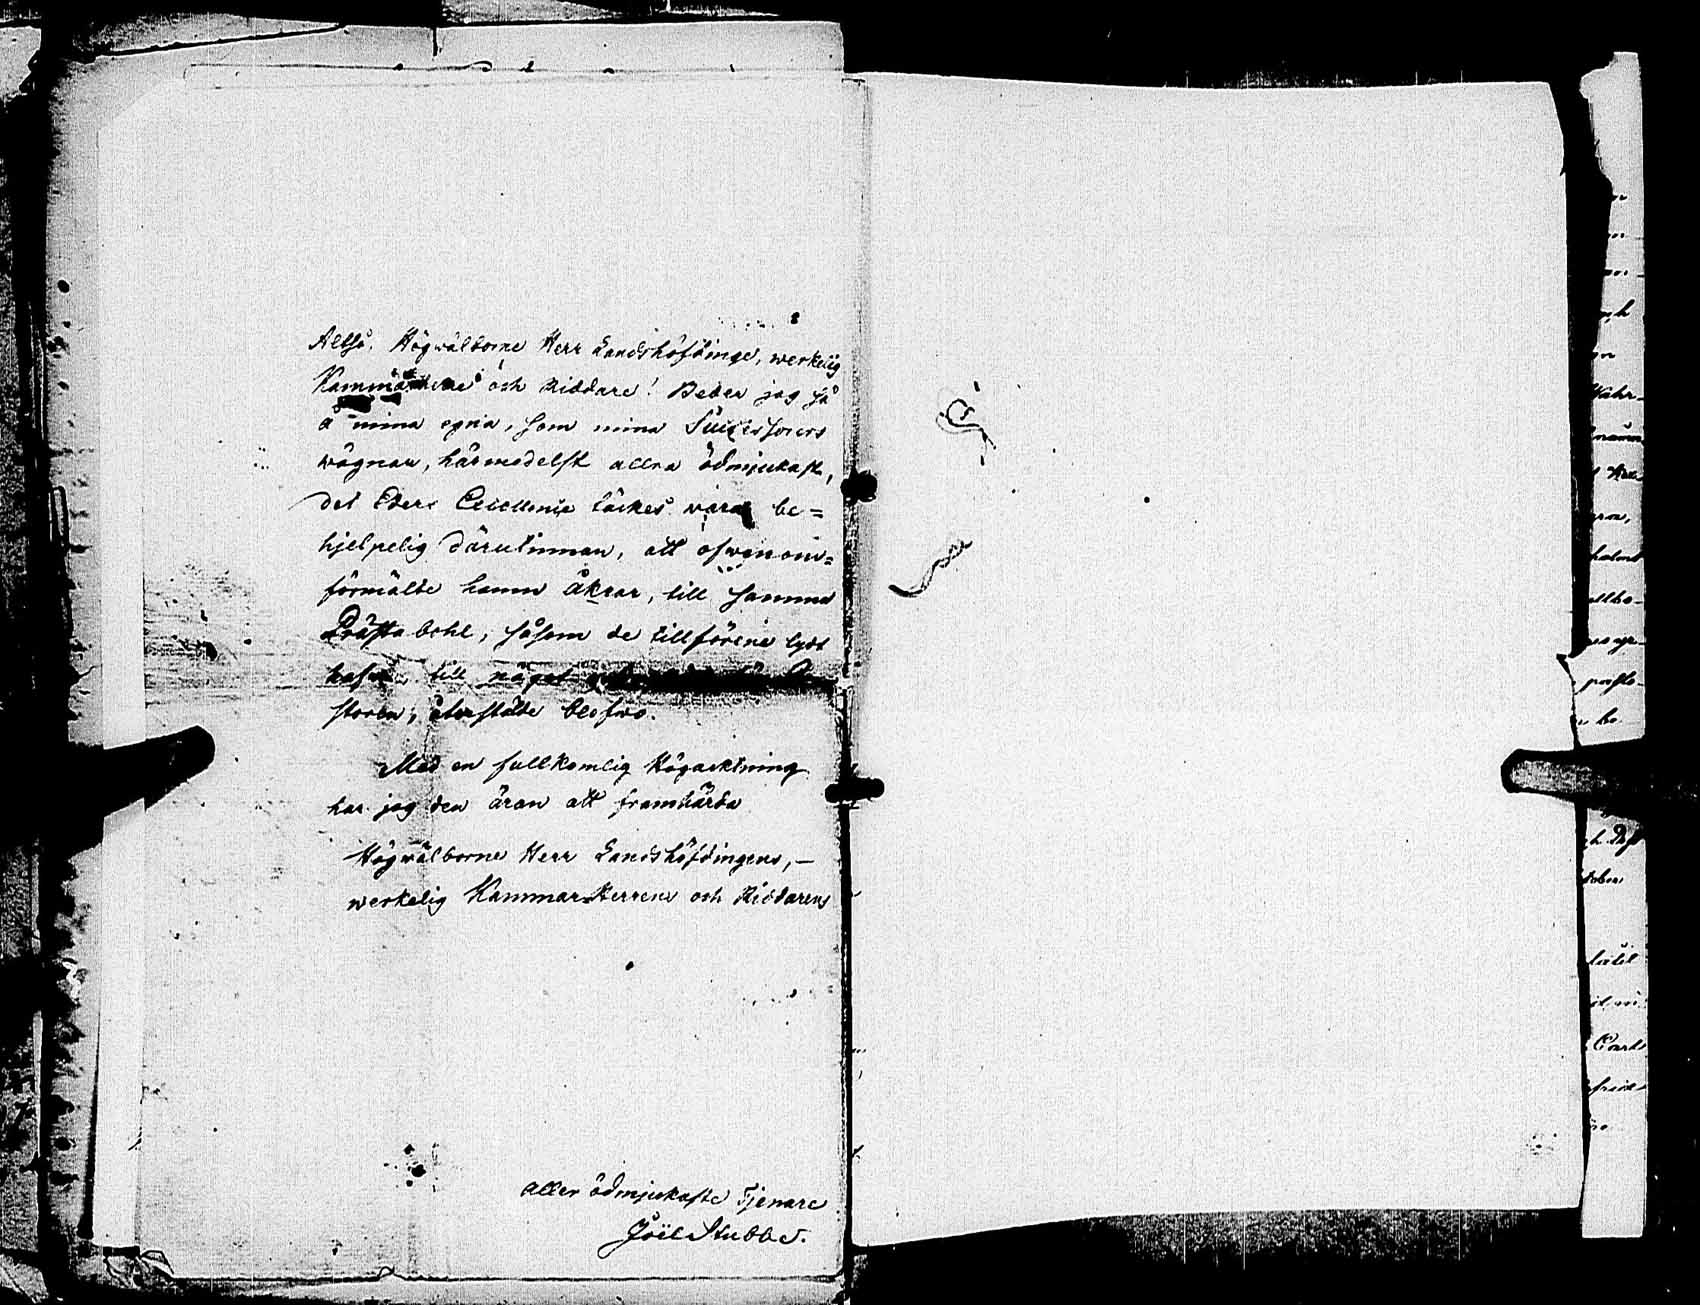 Altså, Högwälborne Herr Landshöfdinge, werkelig
Kammarherre och Riddare! Beder jag så
å mina egna, som mina Successorers
wägnar, härmedelst allra ödmjukast,
det Eders Excellence täckes wara be=
hjelpelig därutinnan, att ofwanom=
förmälde hamn åkrar, till samma
Prästabohl, såsom de tillförene lydt
hafwa, till något
storen, återstälde blefwo.
Med en fullkomlig Högacktning
har jag den äran att framhärda
Högwälborne Herr Landshöfdingens,—
werkelig Kammar-Herrens och Riddarens
aller ödmjukaste Tjenare
Joël Stubbe.